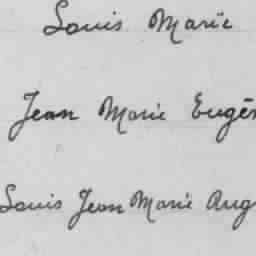 Louis Marie
Jean Marie Eugèn
Louis Jean Marie Aug